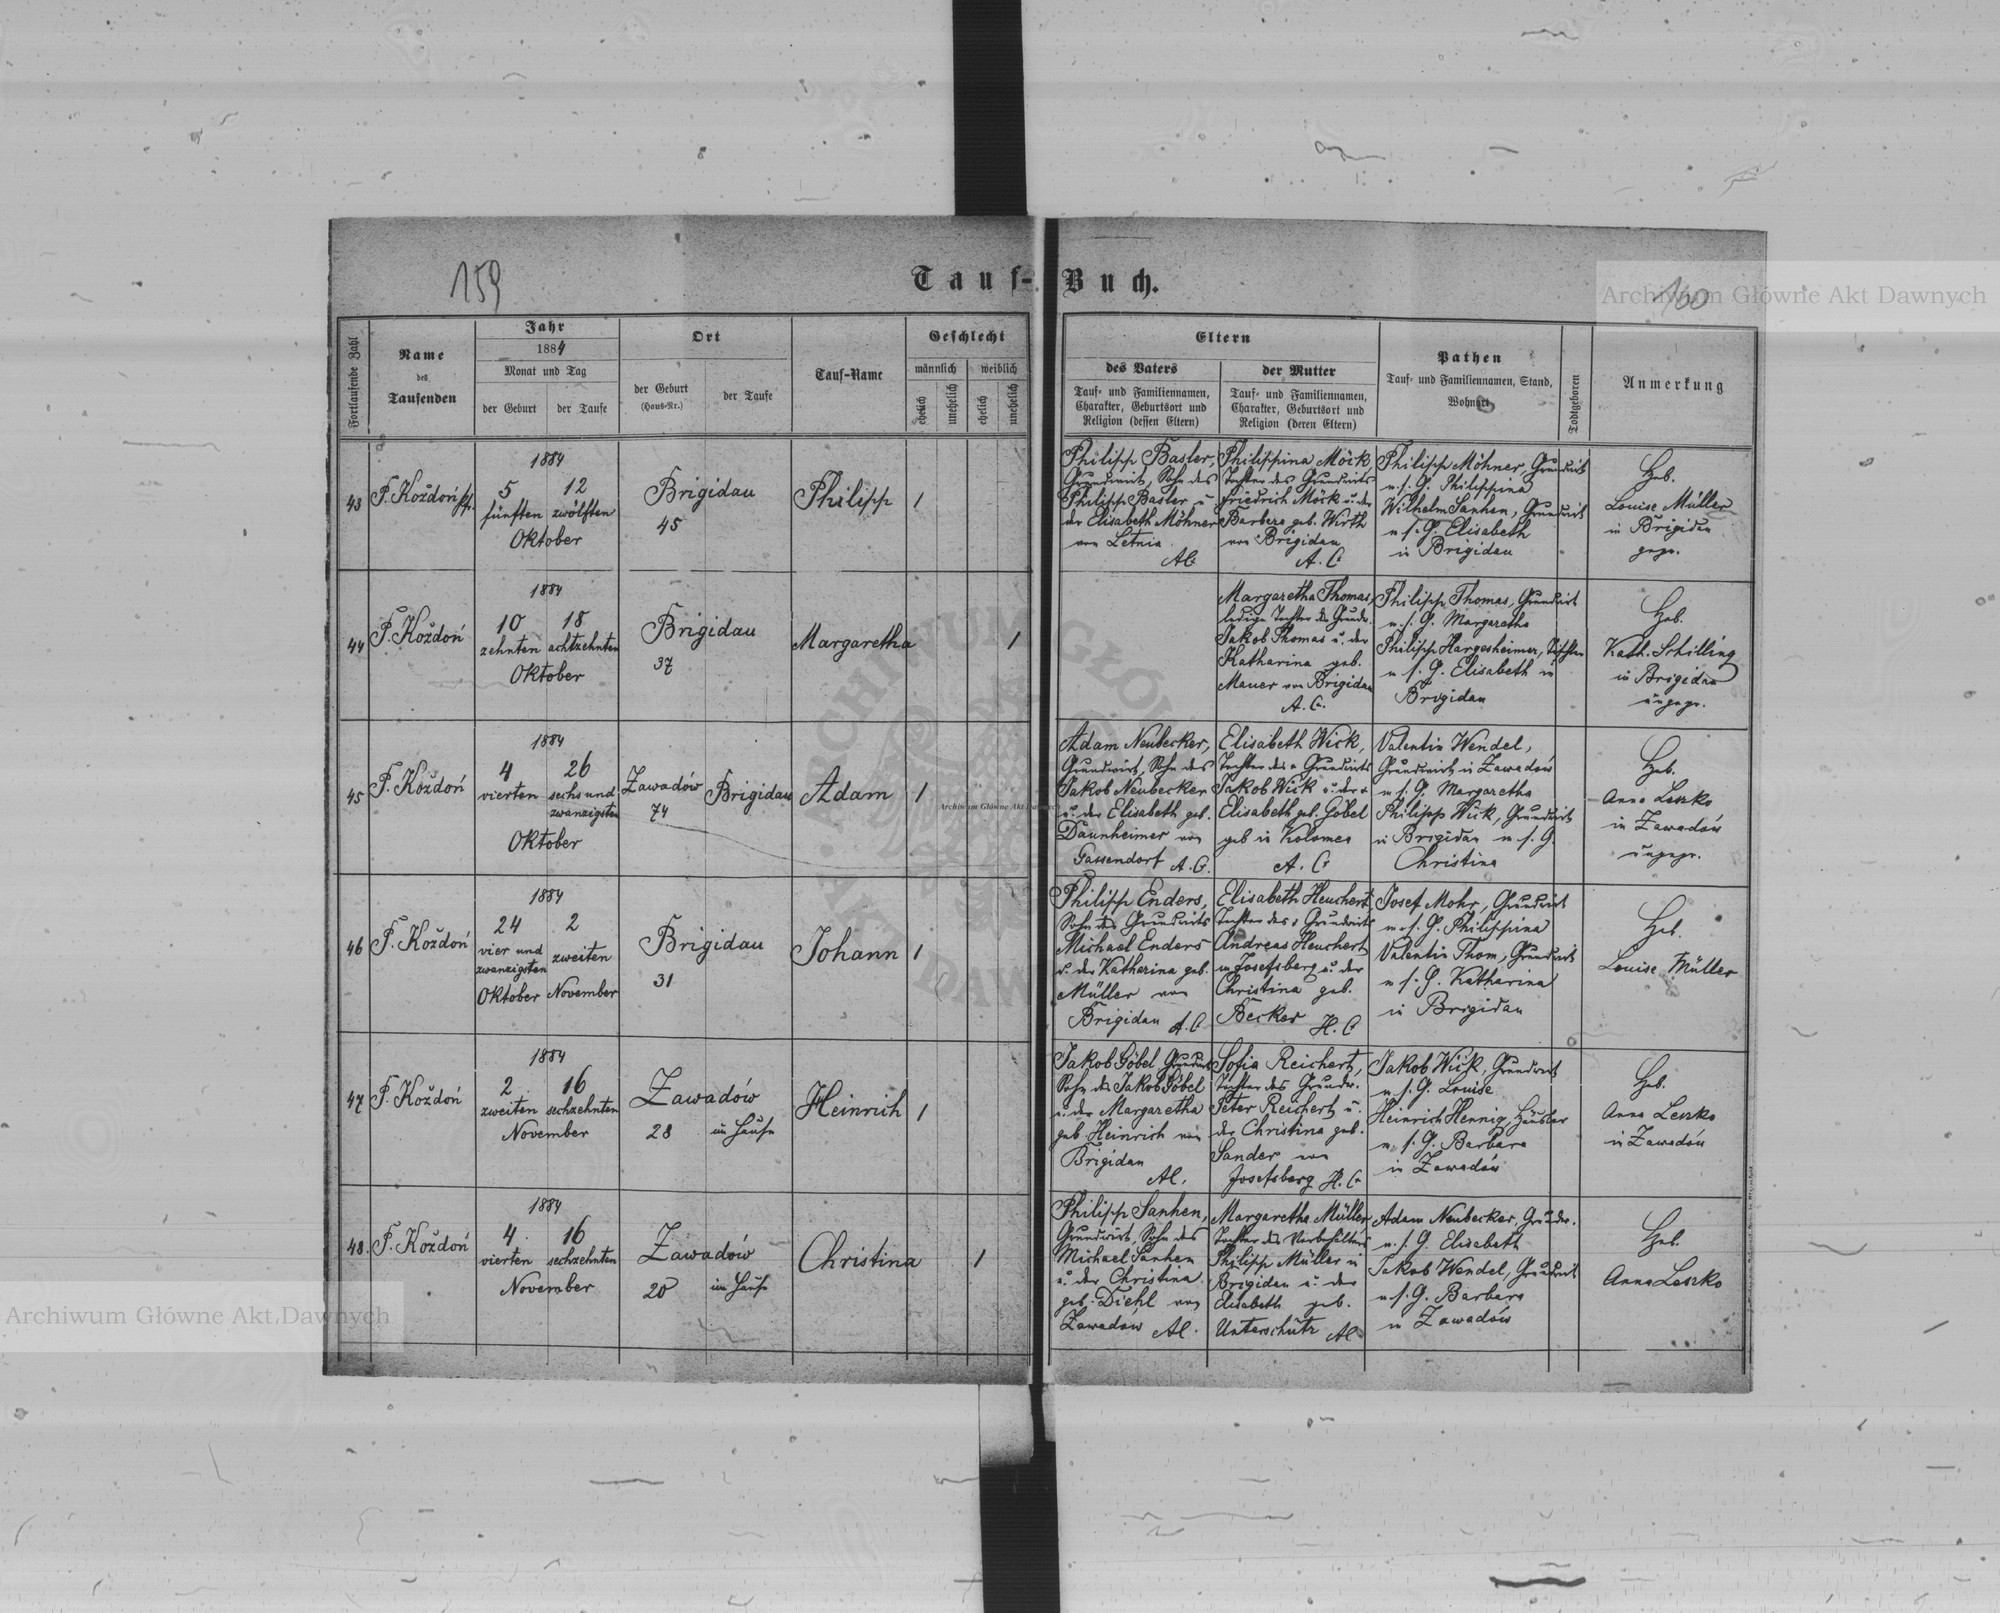 159
Tauf-Buch.
160
Archiwum Główne Akt Dawnych
Fortlaufende Zahl
Name
des
Taufenden
Jahr
1884
Monat und Tag
der Geburt
der Taufe
Ort
der Geburt
(Haus-Nr.)
der Taufe
Tauf-Name
Geschlecht
männlich
weiblich
ehelich
unehelich
ehelich
unehelich
Eltern
des Vaters
Tauf- und Familiennamen,
Charakter, Geburtsort und
Religion (dessen Eltern)
der Mutter
Tauf- und Familiennamen,
Charakter, Geburtsort und
Religion (deren Eltern)
Pathen
Tauf- und Familiennamen, Stand,
Wohnort
Todtgeboren
Anmerkung
43
F. Koždoń
1884
5 12
fünften zwölften
Oktober
Brigidau
45
Philipp
1
Philipp Basler,
Grundwirt, Sohn des
Philipp Basler u
der Elisabeth Möhner
von Letnia
AC
Philippina Möck,
Tochter des Grundwirts
Friedrich Möck u. der
Barbara geb. Wirth
von Brigidau
A. C
Philipp Möhner, Grundwirt
u. s. G. Philippina
Wilhelm Sanhen, Grundwirt
u. s. G. Elisabeth
in Brigidau
Heb.
Louise Müller
in Brigidau
gepr.
44
F. Koždoń
1884
10 18
zehnten achtzehnten
Oktober
Brigidau
37
Margaretha
1
Margaretha Thomas,
ledige Tochter des Grundw.
Jakob Thomas u. der
Katharina geb.
Mauer von Brigidau
A. C.
Philipp Thomas, Grundwirt
u. s. G. Margaretha
Philipp Hargesheimer, Tischler
u s. G. Elisabeth in
Brigidau
Heb.
Kath. Schilling
in Brigidau
ungepr.
45
F. Koždoń
1884
4 26
vierten sechs und
zwanzigsten
Oktober
Zawadów
74
Brigidau
Adam
1
Adam Neubecker,
Grundwirt, Sohn des
Jakob Neubecker
u. der Elisabeth geb.
Daunheimer von
Gassendorf A. C.
Elisabeth Wick,
Tochter des + Grundwirts
Jakob Wick u. der +
Elisabeth geb. Göbel
geb in Kolomea
A. C
Valentin Wendel,
Grundwirt in Zawadów
u. s. G. Margaretha
Philipp Wick, Grundwirt
in Brigidau u. s. G.
Christina
Heb.
Anna Leszko
in Zawadów
ungepr.
46
F. Koždoń
1884
24 2
vier und zweiten
zwanzigsten
Oktober November
Brigidau
31
Johann
1
Philipp Enders,
Sohn des Grundwirts
Michael Enders
u. der Katharina geb.
Müller von
Brigidau A. C
Elisabeth Heuchert
Tochter des + Grundwirts
Andreas Heuchert
in Josefsberg u. der
Christina geb.
Becker H. C
Josef Mohr, Grundwirt
u. s. G. Philippina
Valentin Thom, Grundwirt
u s. G. Katharina
in Brigidau
Heb.
Louise Müller
47
F. Koždoń
1884
2 16
zweiten sechzehnten
November
Zawadów
28 im Hause
Heinrich
1
Jakob Göbel, Grundwirt
Sohn des Jakob Göbel
u. der Margaretha
geb Heinrich von
Brigidau
AC.
Sofia Reichert,
Tochter des Grundw.
Peter Reichert u.
der Christina geb.
Sander von
Josefsberg H. C.
Jakob Wick, Grundwirt
u s. G. Louise
Heinrich Hennig, Häusler
u. s. G. Barbara
in Zawadów
Heb.
Anna Leszko
in Zawadów
48.
F. Koždoń
1884
4. 16
vierten sechzehnten
November
Zawadów
20 im Hause
Christina
1
Philipp Sanhen,
Grundwirt, Sohn des
Michael Sanhen
u. der Christina
geb. Diehl von
Zawadów AC.
Margaretha Müller
Tochter des Vorbehälters
Philipp Müller in
Brigidau u. der
Elisabeth geb.
Unterschütz AC
Adam Neubecker, Grundw.
u. s. G Elisabeth
Jakob Wendel, Grundwirt
u s. G. Barbara
in Zawadów
Heb.
Anna Leszko
Archiwum Główne Akt Dawnych
Archiwum Główne Akt Dawnych